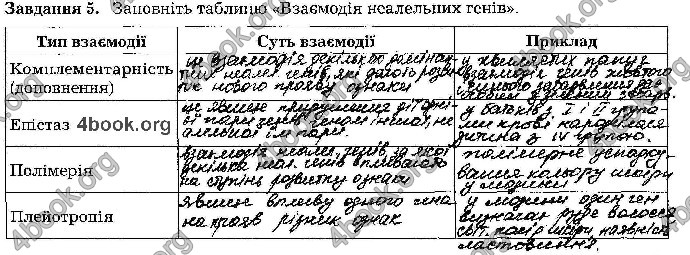 Завдання 5. Заповніть таблицю «Взаємодія неалельних генів».
Тип взаємодії
Суть взаємодії
Приклад
Комплементарність
(доповнення)
це взаємодія декількох домінант-
них неалел. генів, які дають розви-
ток нового прояву ознаки
у хвилястих папуг
взаємодія генів жовтого
Епістаз
4book.org
це явище пригнічення дії одні-
єї пари генів геном іншої, не
алельної їм пари.
у батьків з I і II група-
ми крові народилася
дитина з IV групою.
Полімерія
взаємодія неалел. генів, за якої
декілька неал. генів впливають
на ступінь розвитку ознаки
полімерне успадку-
вання кольору шкіри
у людини
Плейотропія
явище впливу одного гена
на прояв різних ознак
у людини один ген
визначає руде волосся
світ. колір шкіри, наявність
ластовиння.